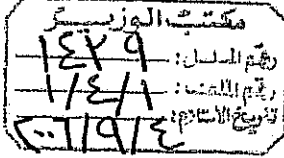 مكتب الوزير
رقم المسلسل: ١٤٢٩
رقم الملف: ١/٤/١
تاريخ الاستلام: ٢٠٠٦/٩/٤